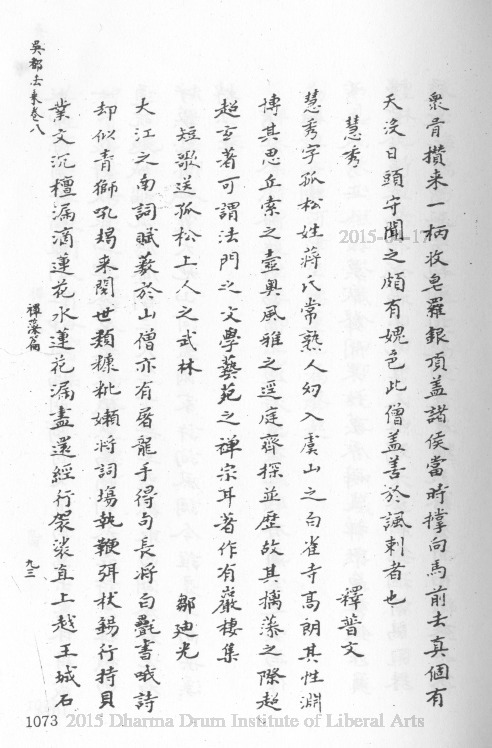 衆骨攢来一柄收皂羅銀頂盖諸侯當時撑向馬前去真個有
天沒日頭守聞之頗有媿色此僧盖善於諷刺者也
慧秀
釋普文
慧秀字孤松姓蔣氏常熟人幼入虞山之白雀寺高朗其性淵
博其思丘索之壼奥風雅之逕庭齊探並歷故其摛藻之際超
超玄著可謂法門之文學藝苑之禅宗耳著作有巖棲集
短歌送孤松上人之武林
鄒廸光
大江之南詞賦藪於山僧亦有屠龍手得句長將白氎書哦詩
却似青獅吼朅来閱世類糠粃嬾将詞塲執鞭弭杖錫行持貝
葉文沉檀漏滴蓮花水蓮花漏盡還經行袈裟直上越王城石
吳都法乘卷八
禪藻篇
九三
1073
2015-04-17
2015 Dharma Drum Institute of Liberal Arts